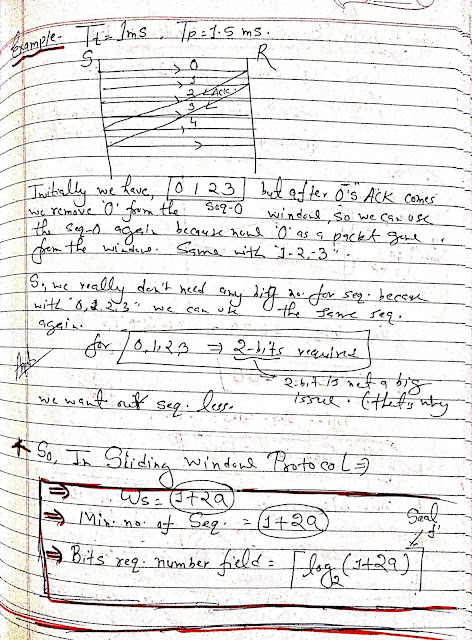 Example- Tt = 1ms , Tp = 1.5 ms.
S R
0
1
2 Ack
3
4
Initially we have, 0 1 2 3 but after 0's ACK comes
we remove '0' from the Seq-0 window so we can use
the seq-0 again because now '0' as a packet gone
from the window. Same with "1-2-3".
So, we really don't need any diff no. for seq. becase
with "0,1,2,3" we can use the same seq.
again.
for 0,1,2,3 ⇒ 2-bits required
2-bit is not a big
we want out seq. less. issue. (that's why
So, In Sliding window Protocol ⇒
⇒ Ws = (1+2a)
⇒ Min. no. of Seq. = (1+2a)
⇒ Bits req. number field = ⌈log₂ (1+2a)⌉